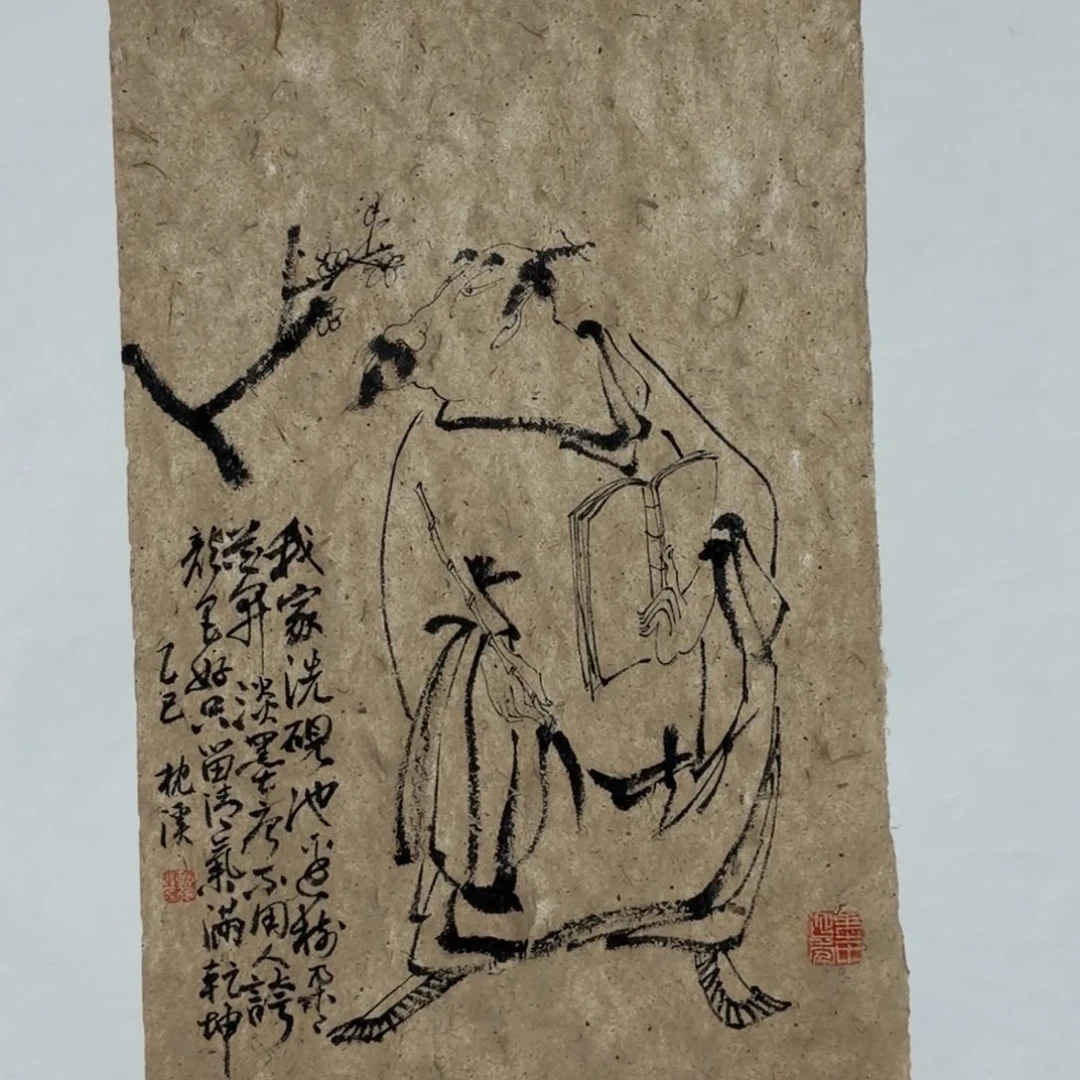 我家洗硯池邊樹朵々
花開淡墨痕不用人誇
顏色好只留清氣滿乾坤
乙巳 枕溪